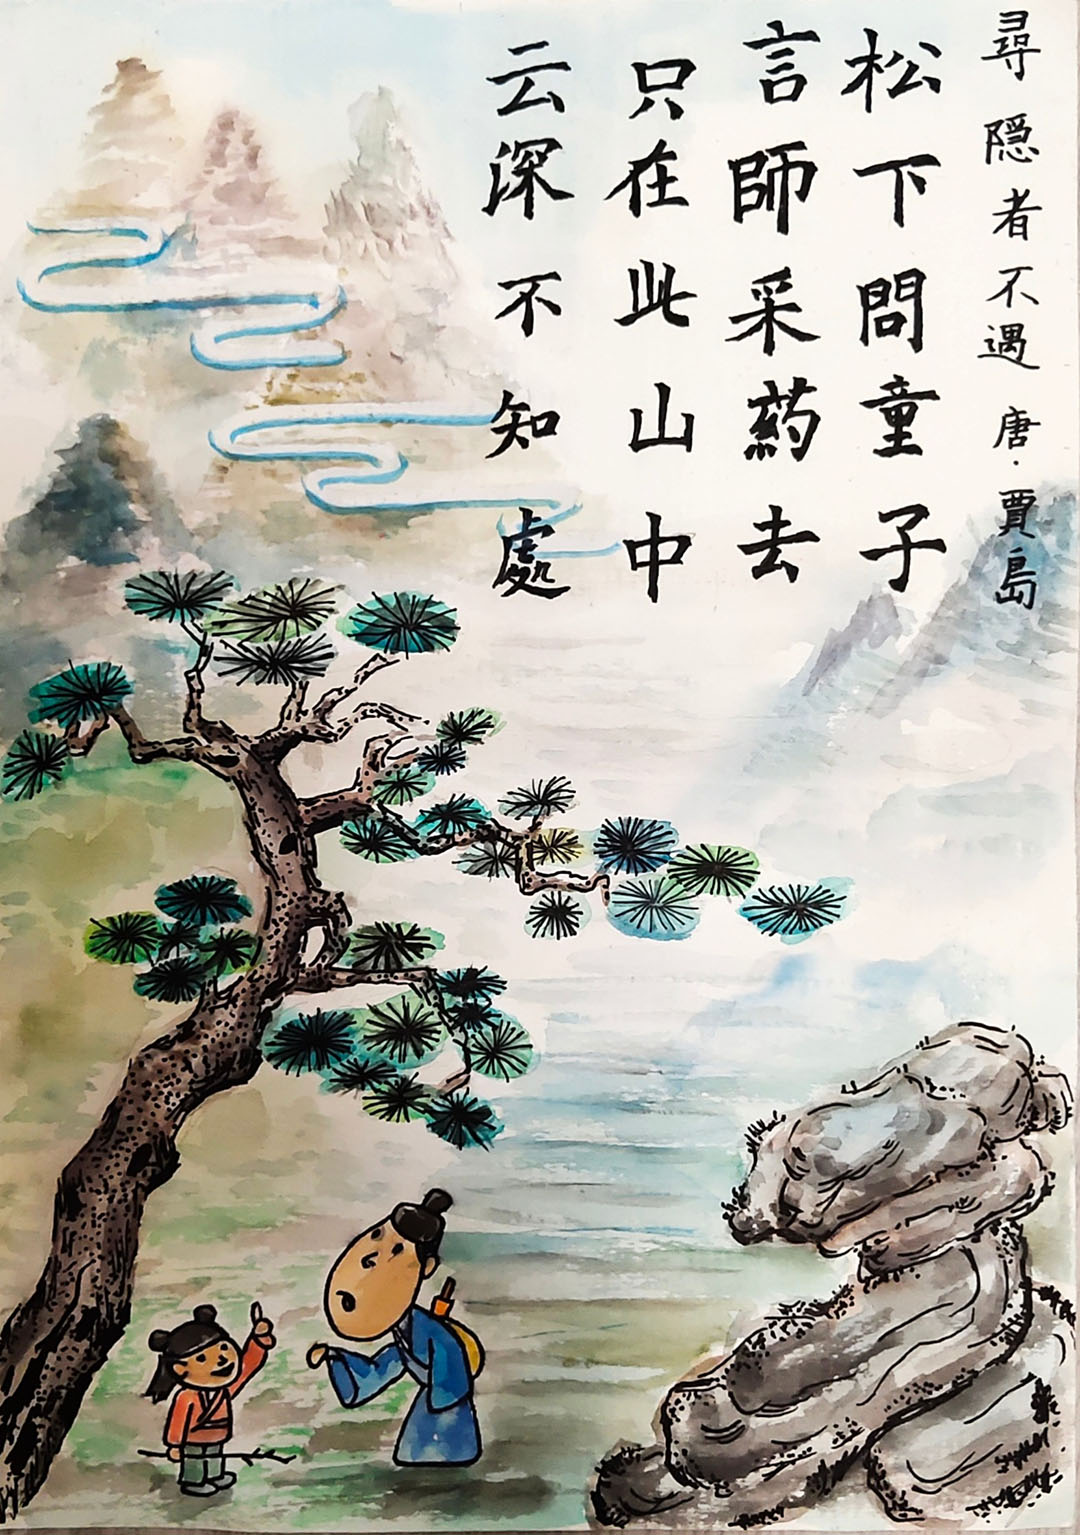 尋隠者不遇 唐·賈島
松下問童子
言師采药去
只在此山中
云深不知處